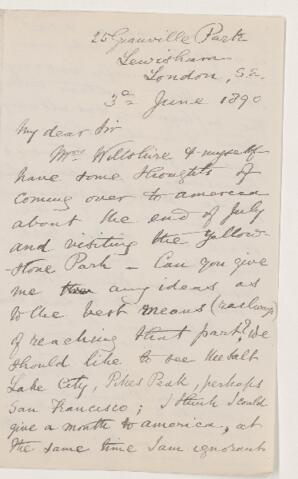 25 Granville Park
Lewisham
London, S.E.
3d June 1890
My dear Sir
Mrs Wiltshire & myself
have some thoughts of
coming over to america
about the end of July
and visiting the Yellow-
-stone Park - Can you give
me any ideas as
to the best means (railways)
of reaching that part? We
should like to see the Salt
Lake City, Pikes Peak, perhaps
San Francisco; I think I could
give a month to america, at
the same time I am ignorant